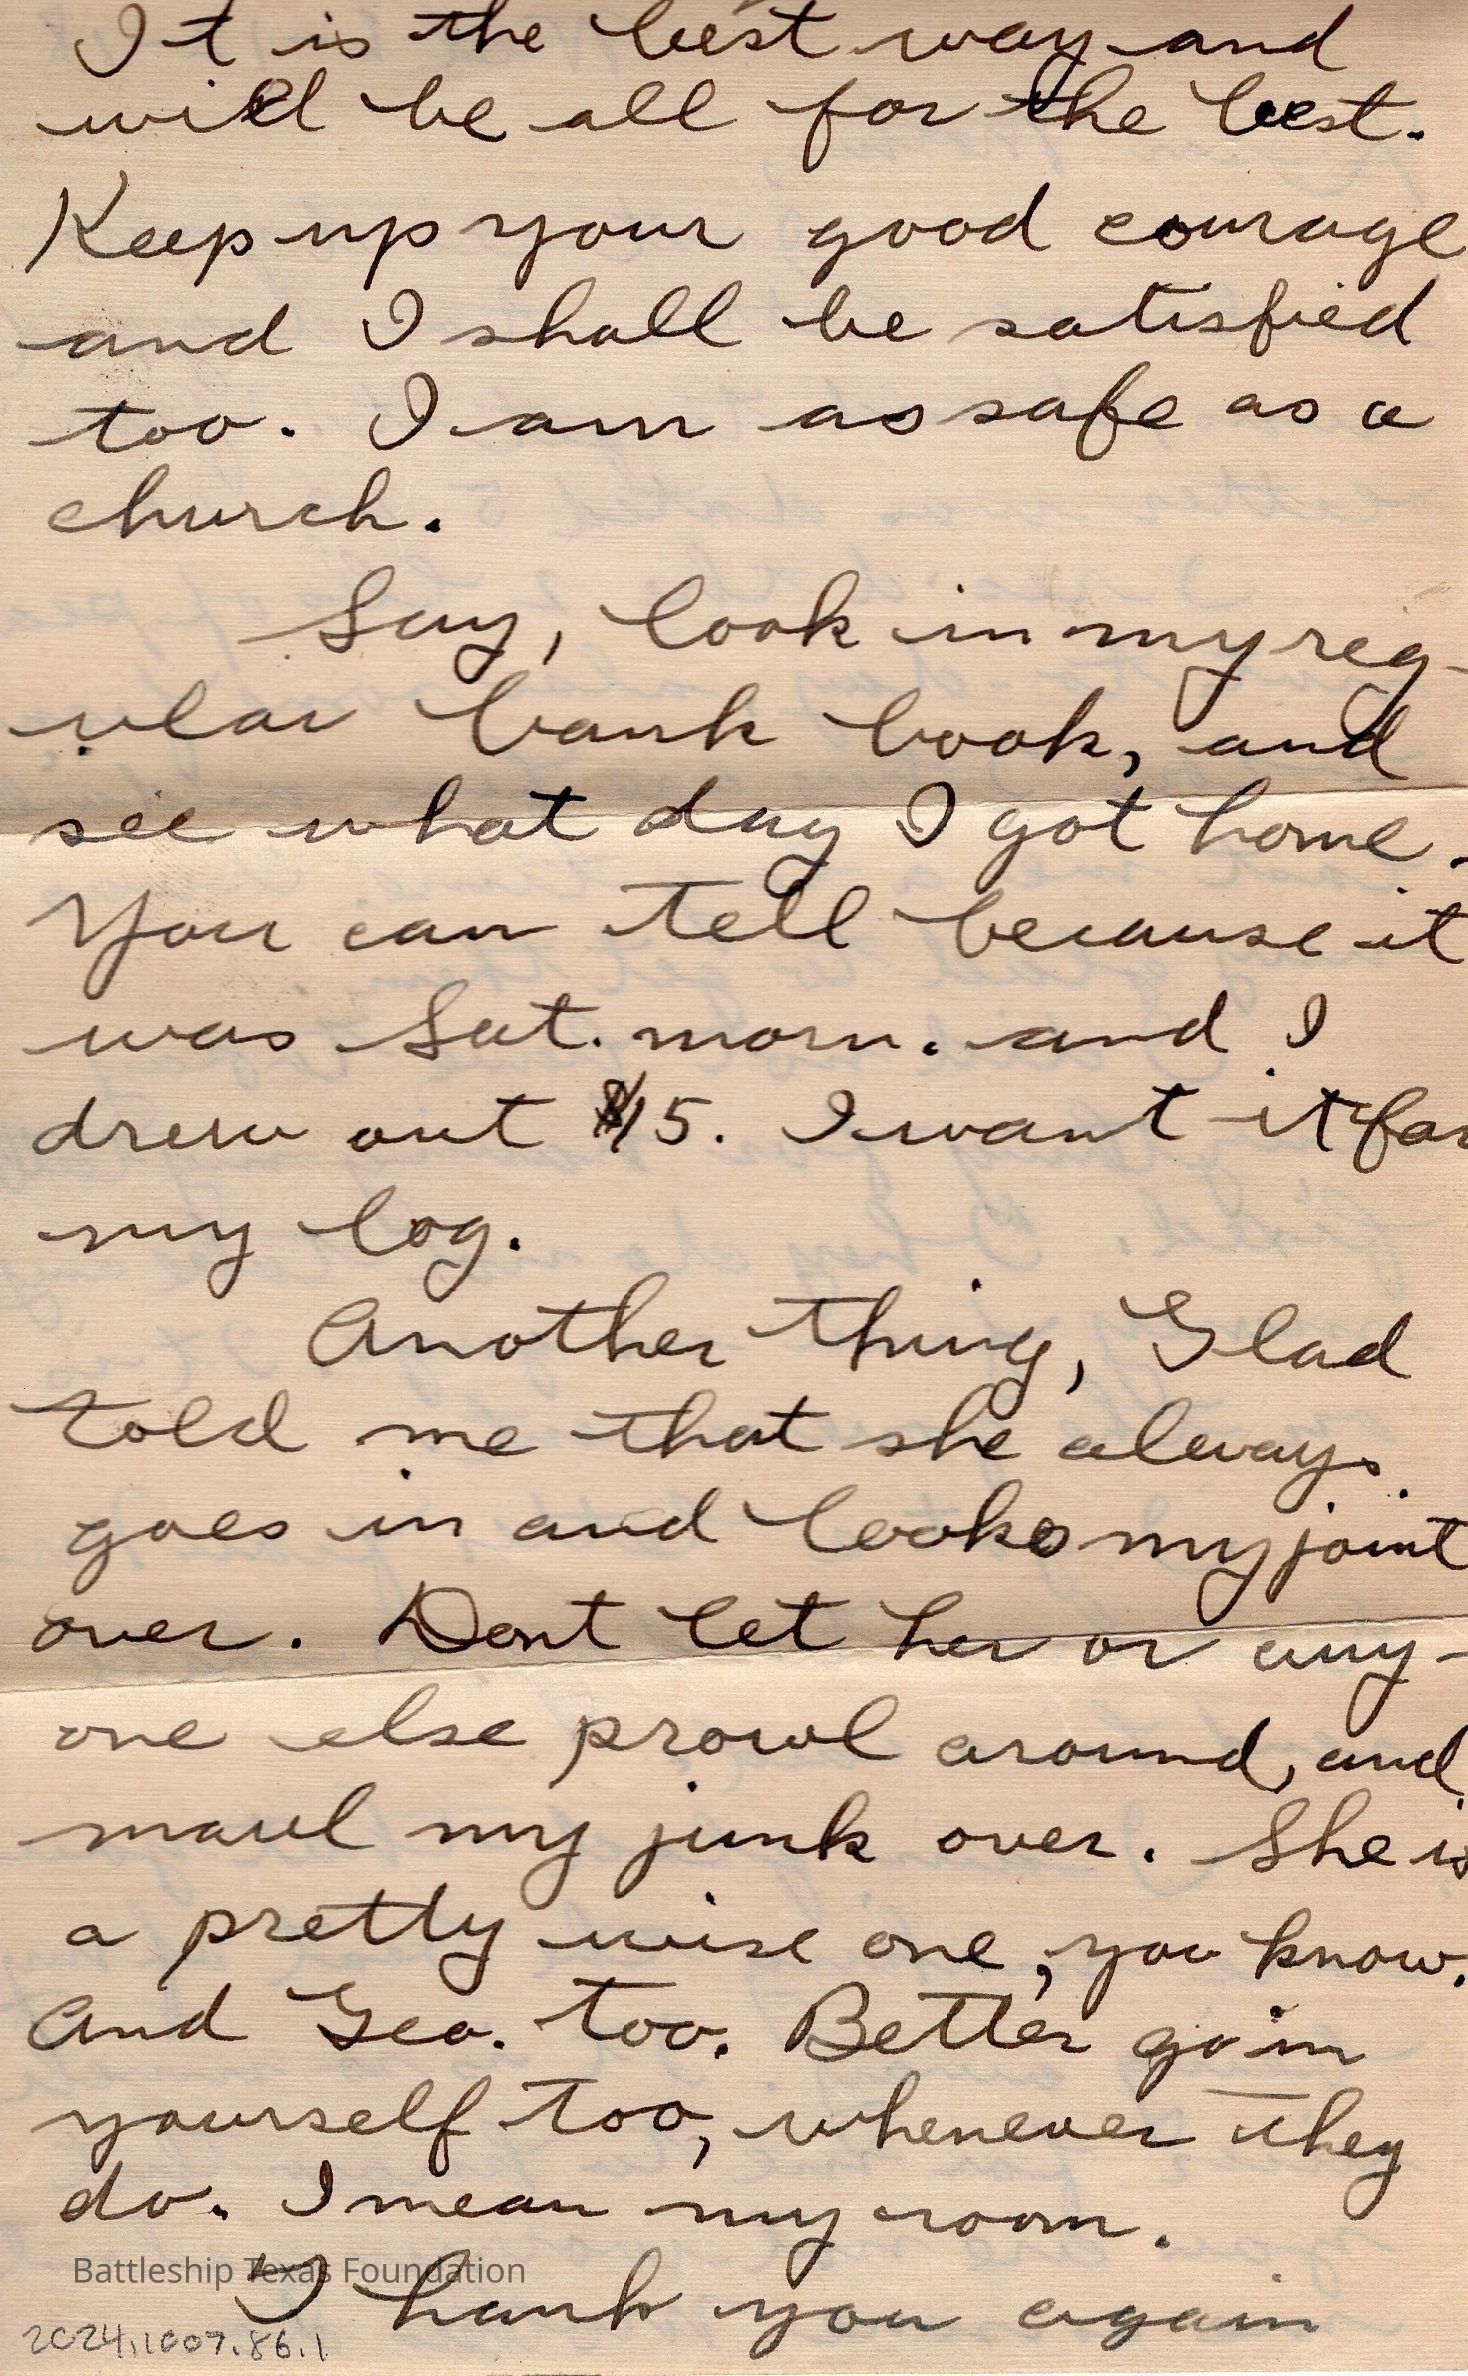 It is the best way and
will be all for the best.
Keep up your good courage
and I shall be satisfied
too. I am as safe as a
church.
Say, look in my reg-
ular bank book, and
see what day I got home.
You can tell because it
was Sat. morn. and I
drew out $15. I want it for
my log.
Another thing, Glad
told me that she always
goes in and looks my joint
over. Dont let her or any-
one else prowl around, and
maul my junk over. She is
a pretty wise one, you know.
And Geo. too. Better go in
yourself too, whenever they
do. I mean my room.
Battleship Texas Foundation
Thank you again
2024.1007.86.1